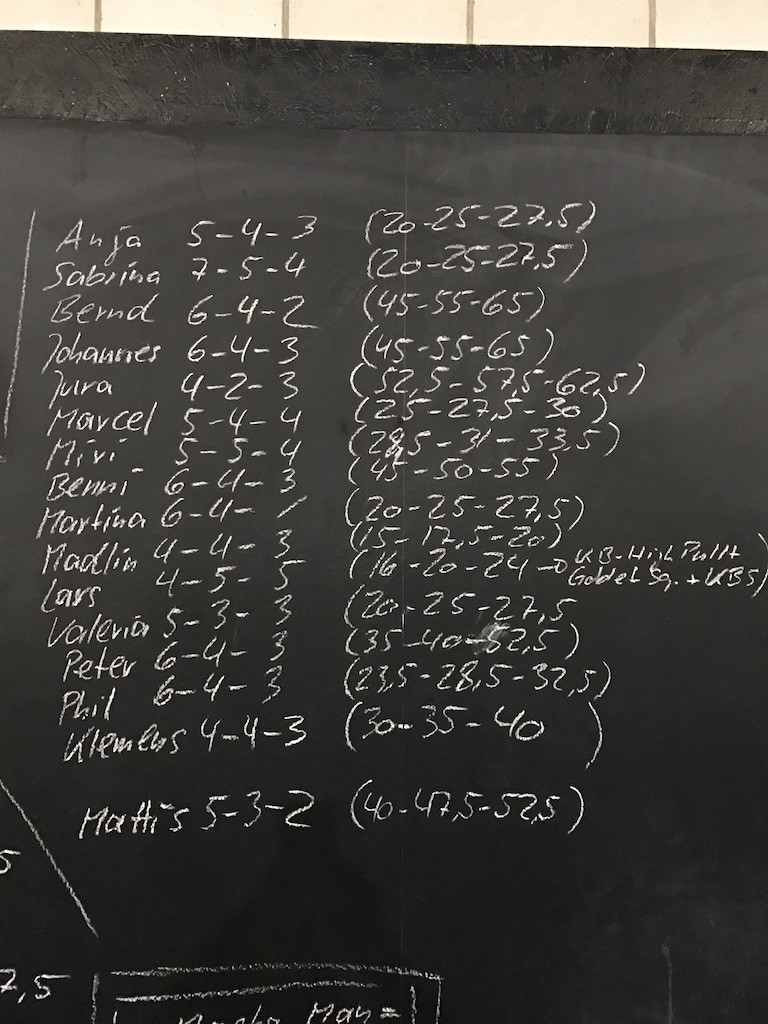 Anja 5-4-3 (20-25-27,5)
Sabrina 7-5-4 (20-25-27,5)
Bernd 6-4-2 (45-55-65)
Johannes 6-4-3 (45-55-65)
Jura 4-2-3 (52,5-57,5-62,5)
Marcel 5-4-4 (25-27,5-30)
Mivi 5-5-4 (28,5-31-33,5)
Benni 6-4-3 (45-50-55)
Martina 6-4-/ (20-25-27,5)
Madlin 4-4-3 (15-17,5-20)
Lars 4-5-5 (16-20-24 → KB-High Pull+
Goblet Sq. + KBS)
Valeria 5-3-3 (20-25-27,5
Peter 6-4-3 (35-40-52,5)
Phil 6-4-3 (23,5-28,5-32,5)
Klemens 4-4-3 (30-35-40)
Mattis 5-3-2 (40-47,5-52,5)
5
7,5
May=